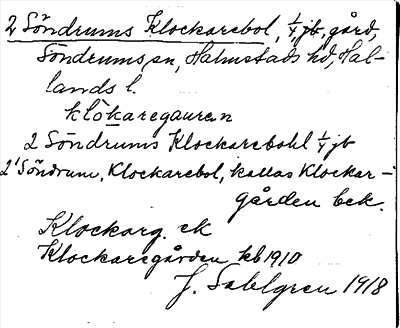 2 Söndrums Klockarebol, 1/4 jb, gård,
Söndrums sn, Halmstads hd, Hal-
lands l.
klökaregauren
2 Söndrums Klockarebohl 1/4 jb
2' Söndrum, Klockarebol, kallas Klockar-
gården bek.
Klockarg. ek
Klockaregården kb 1910
J. Sahlgren 1918